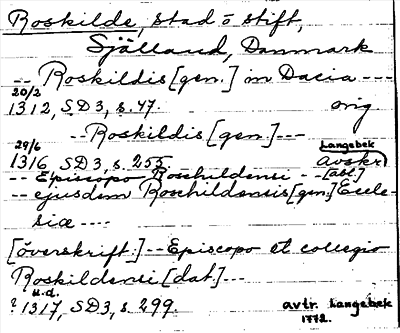 Roskilde, stad o stift,
Själland, Danmark
-- Roskildis [gen.] in Dacia ----
20/2
1312, SD3, s. 47. orig.
-- Roskildis [gen.] ---
29/6 Langebek
1316, SD3, s. 255. avskr.
-- Episcopo Roschildensi -- [abl.]
-- ejusdem Roschildensis [gen.] Eccle-
siæ ----
[överskrift:] -- Episcopo et collegio
Roskildensi [dat.] ---
u.d.
? 1317, SD3, s. 299. avtr. Langebek
1772.